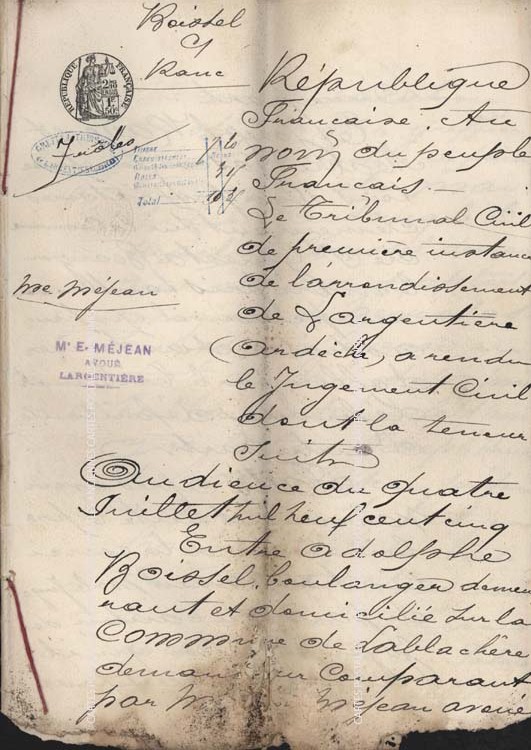 Boissel
Ranc
RÉPUBLIQUE FRANÇAISE
République
Francaise. Au
nom du peuple
Francais. —
Le Tribunal Civil
de première instance
de l'arrondissement
de Largentière
(Ardèche, a rendu
le Jugement Civil
dont la teneur
suit
Total
Me Méjean
Me E. MÉJEAN
AVOUÉ
LARGENTIÈRE
Audience du quatre
Juillet mil neuf cent cinq
Entre Adolphe
Boissel, boulanger demeu
rant et domicilié sur la
Commune de Lablachère
demandeur Comparant
par M Méjean avoué